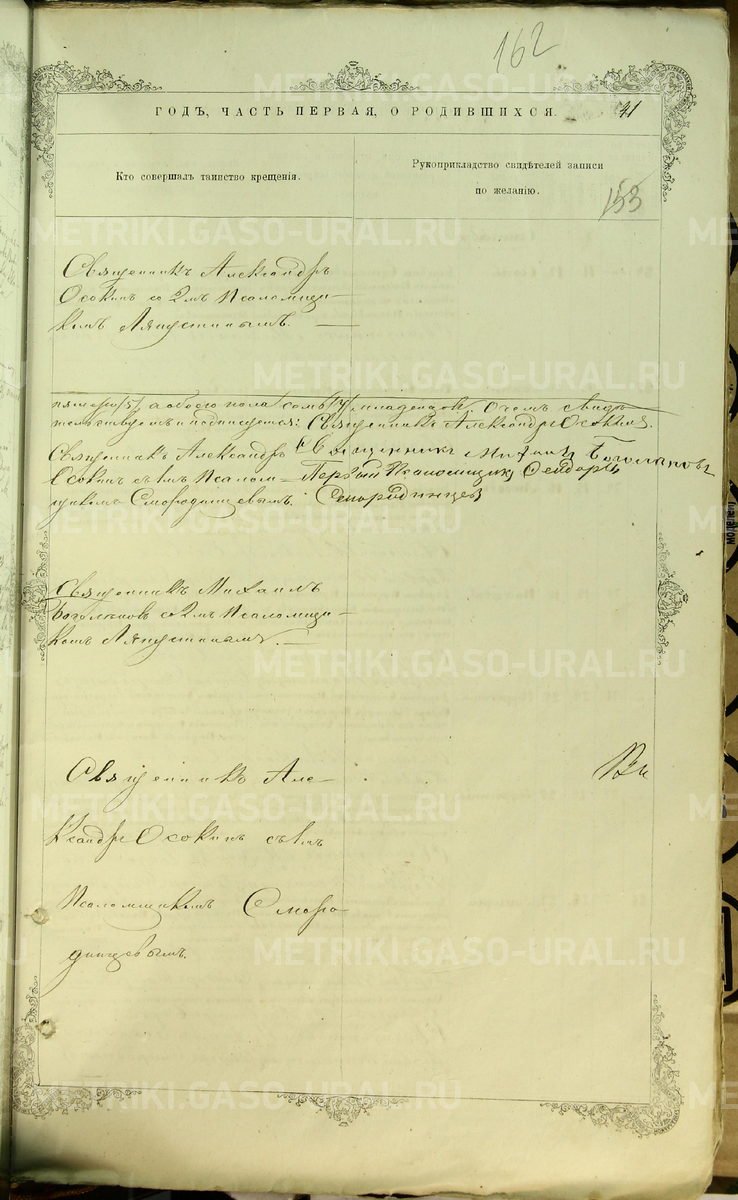 162
ГОДЪ, ЧАСТЬ ПЕРВАЯ, О РОДИВШИХСЯ.
41
Кто совершалъ таинство крещенія.
Рукоприкладство свидѣтелей записи
по желанію.
153
Священникъ Александръ
Осокинъ со 2мъ Псаломщи-
комъ Ляпустинымъ.
а обоего пола семь /7/ младенцовъ. О чемъ свидѣ-
тельствуемъ и подписуемся: Священникъ Александръ Осокинъ.
Священникъ Александръ
Осокинъ съ 1мъ Псалом-
щикомъ Смородинцевымъ.
Священникъ Михаилъ Боголюповъ
Первый Псаломщикъ
Смородинцев
Священникъ Михаилъ
Боголюповъ со 2мъ Псаломщи-
комъ Ляпустинымъ.
Священникъ Але-
ксандръ Осокинъ съ 1мъ
Псаломщикомъ Сморо-
динцевымъ.
METRIKI.GASO-URAL.RU